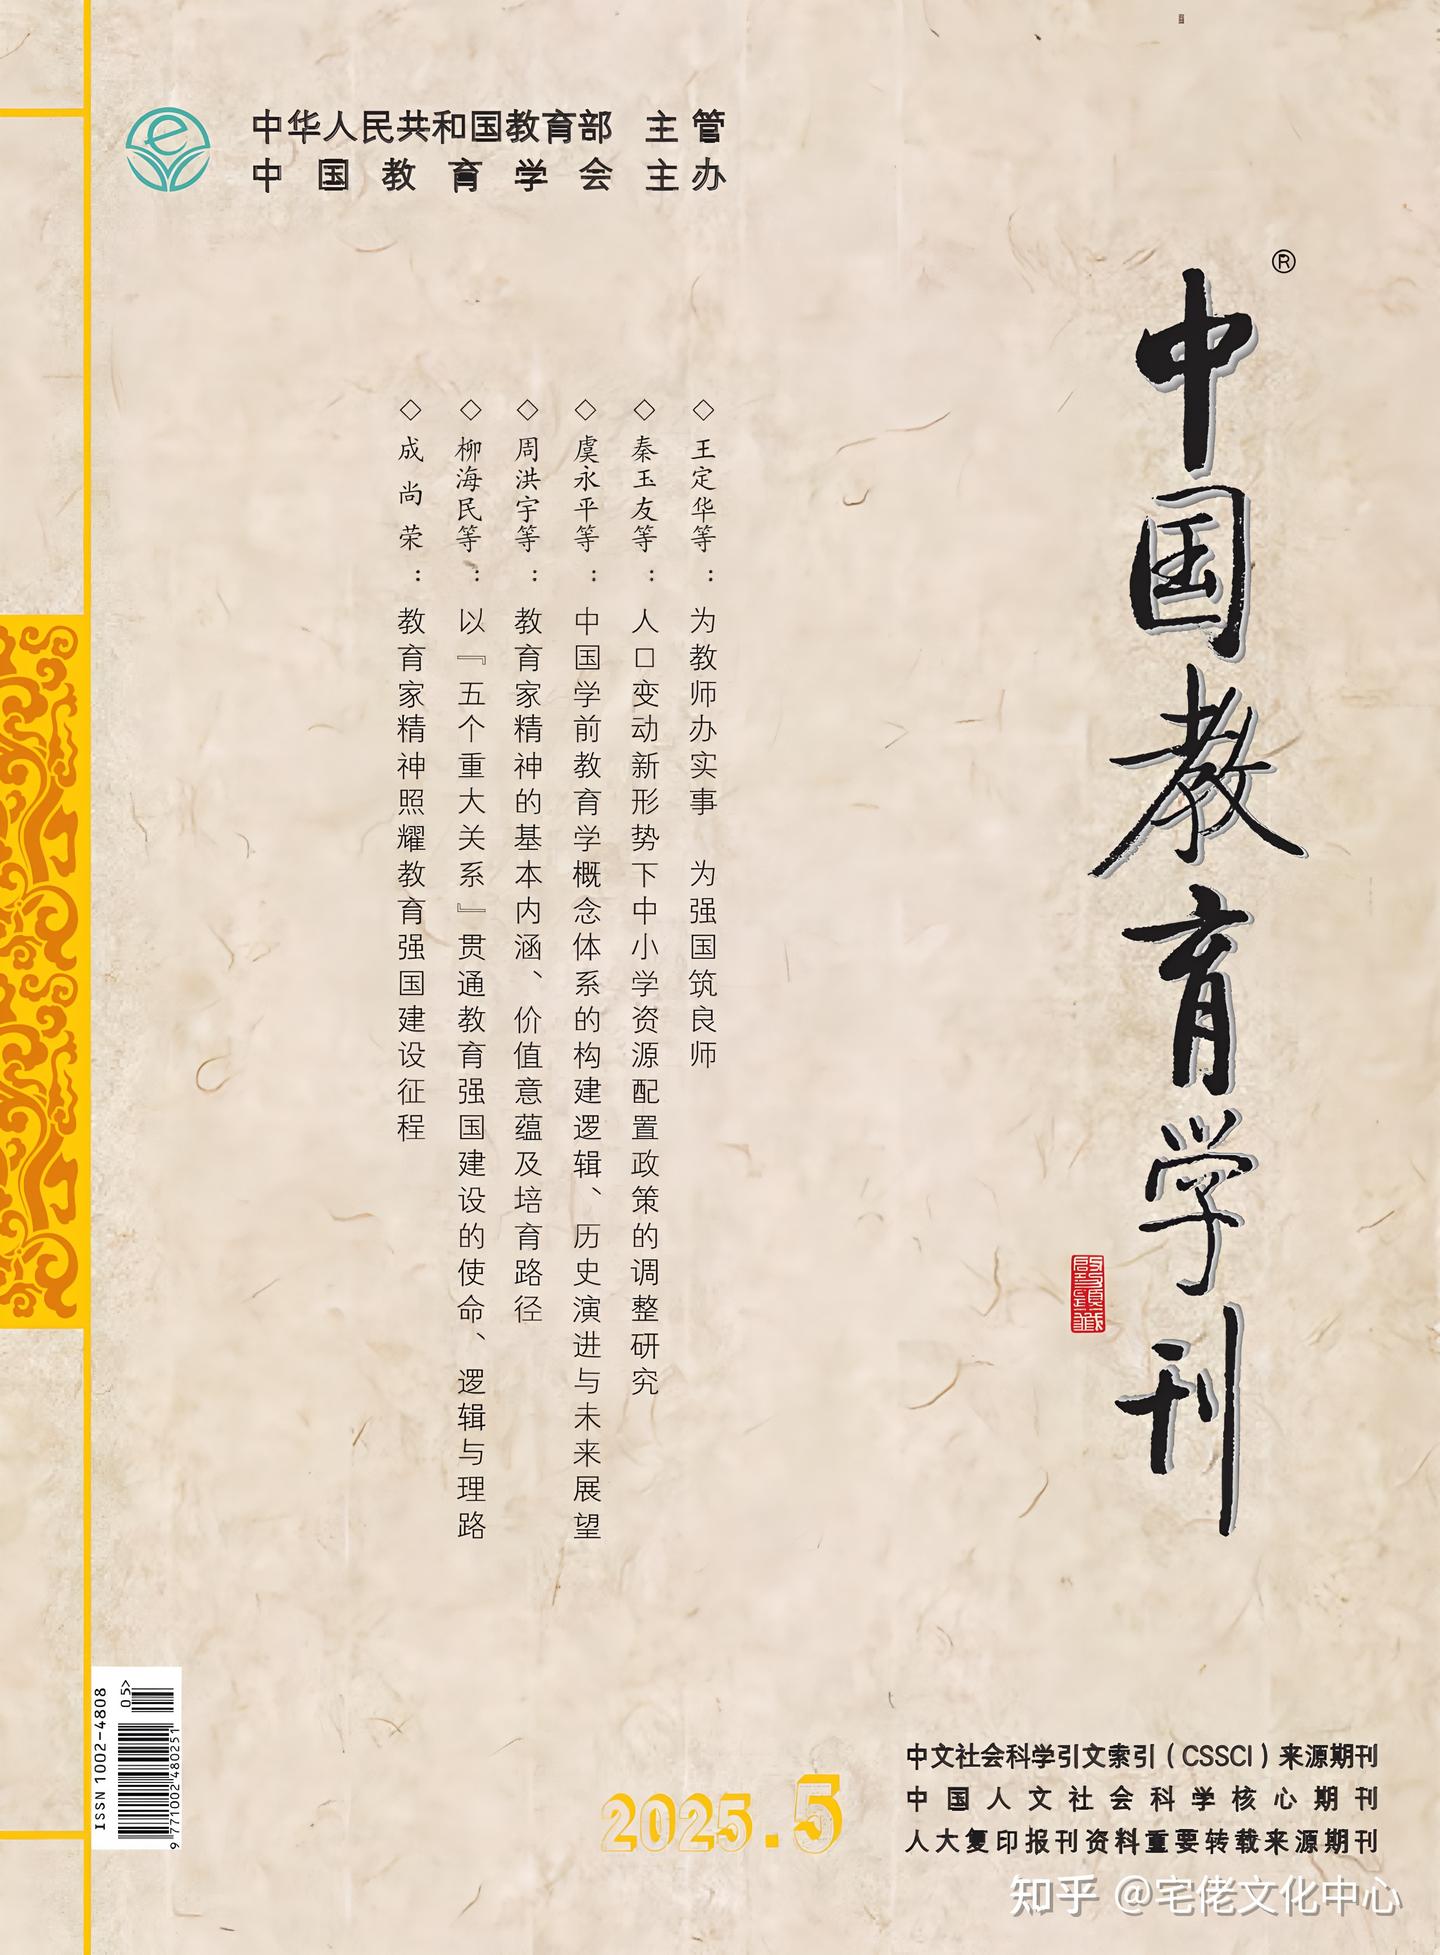 中华人民共和国教育部 主管
中国教育学会主办
®
中国教育学刊
启功题签
◇王定华等：为教师办实事 为强国筑良师
◇秦玉友等：人口变动新形势下中小学资源配置政策的调整研究
◇虞永平等：中国学前教育学概念体系的构建逻辑、历史演进与未来展望
◇周洪宇等：教育家精神的基本内涵、价值意蕴及培育路径
◇柳海民等：以『五个重大关系』贯通教育强国建设的使命、逻辑与理路
◇成尚荣：教育家精神照耀教育强国建设征程
ISSN 1002-4808
05>
9 771002 480251
2025.5
中文社会科学引文索引（CSSCI）来源期刊
中国人文社会科学核心期刊
人大复印报刊资料重要转载来源期刊
知乎 @宅佬文化中心